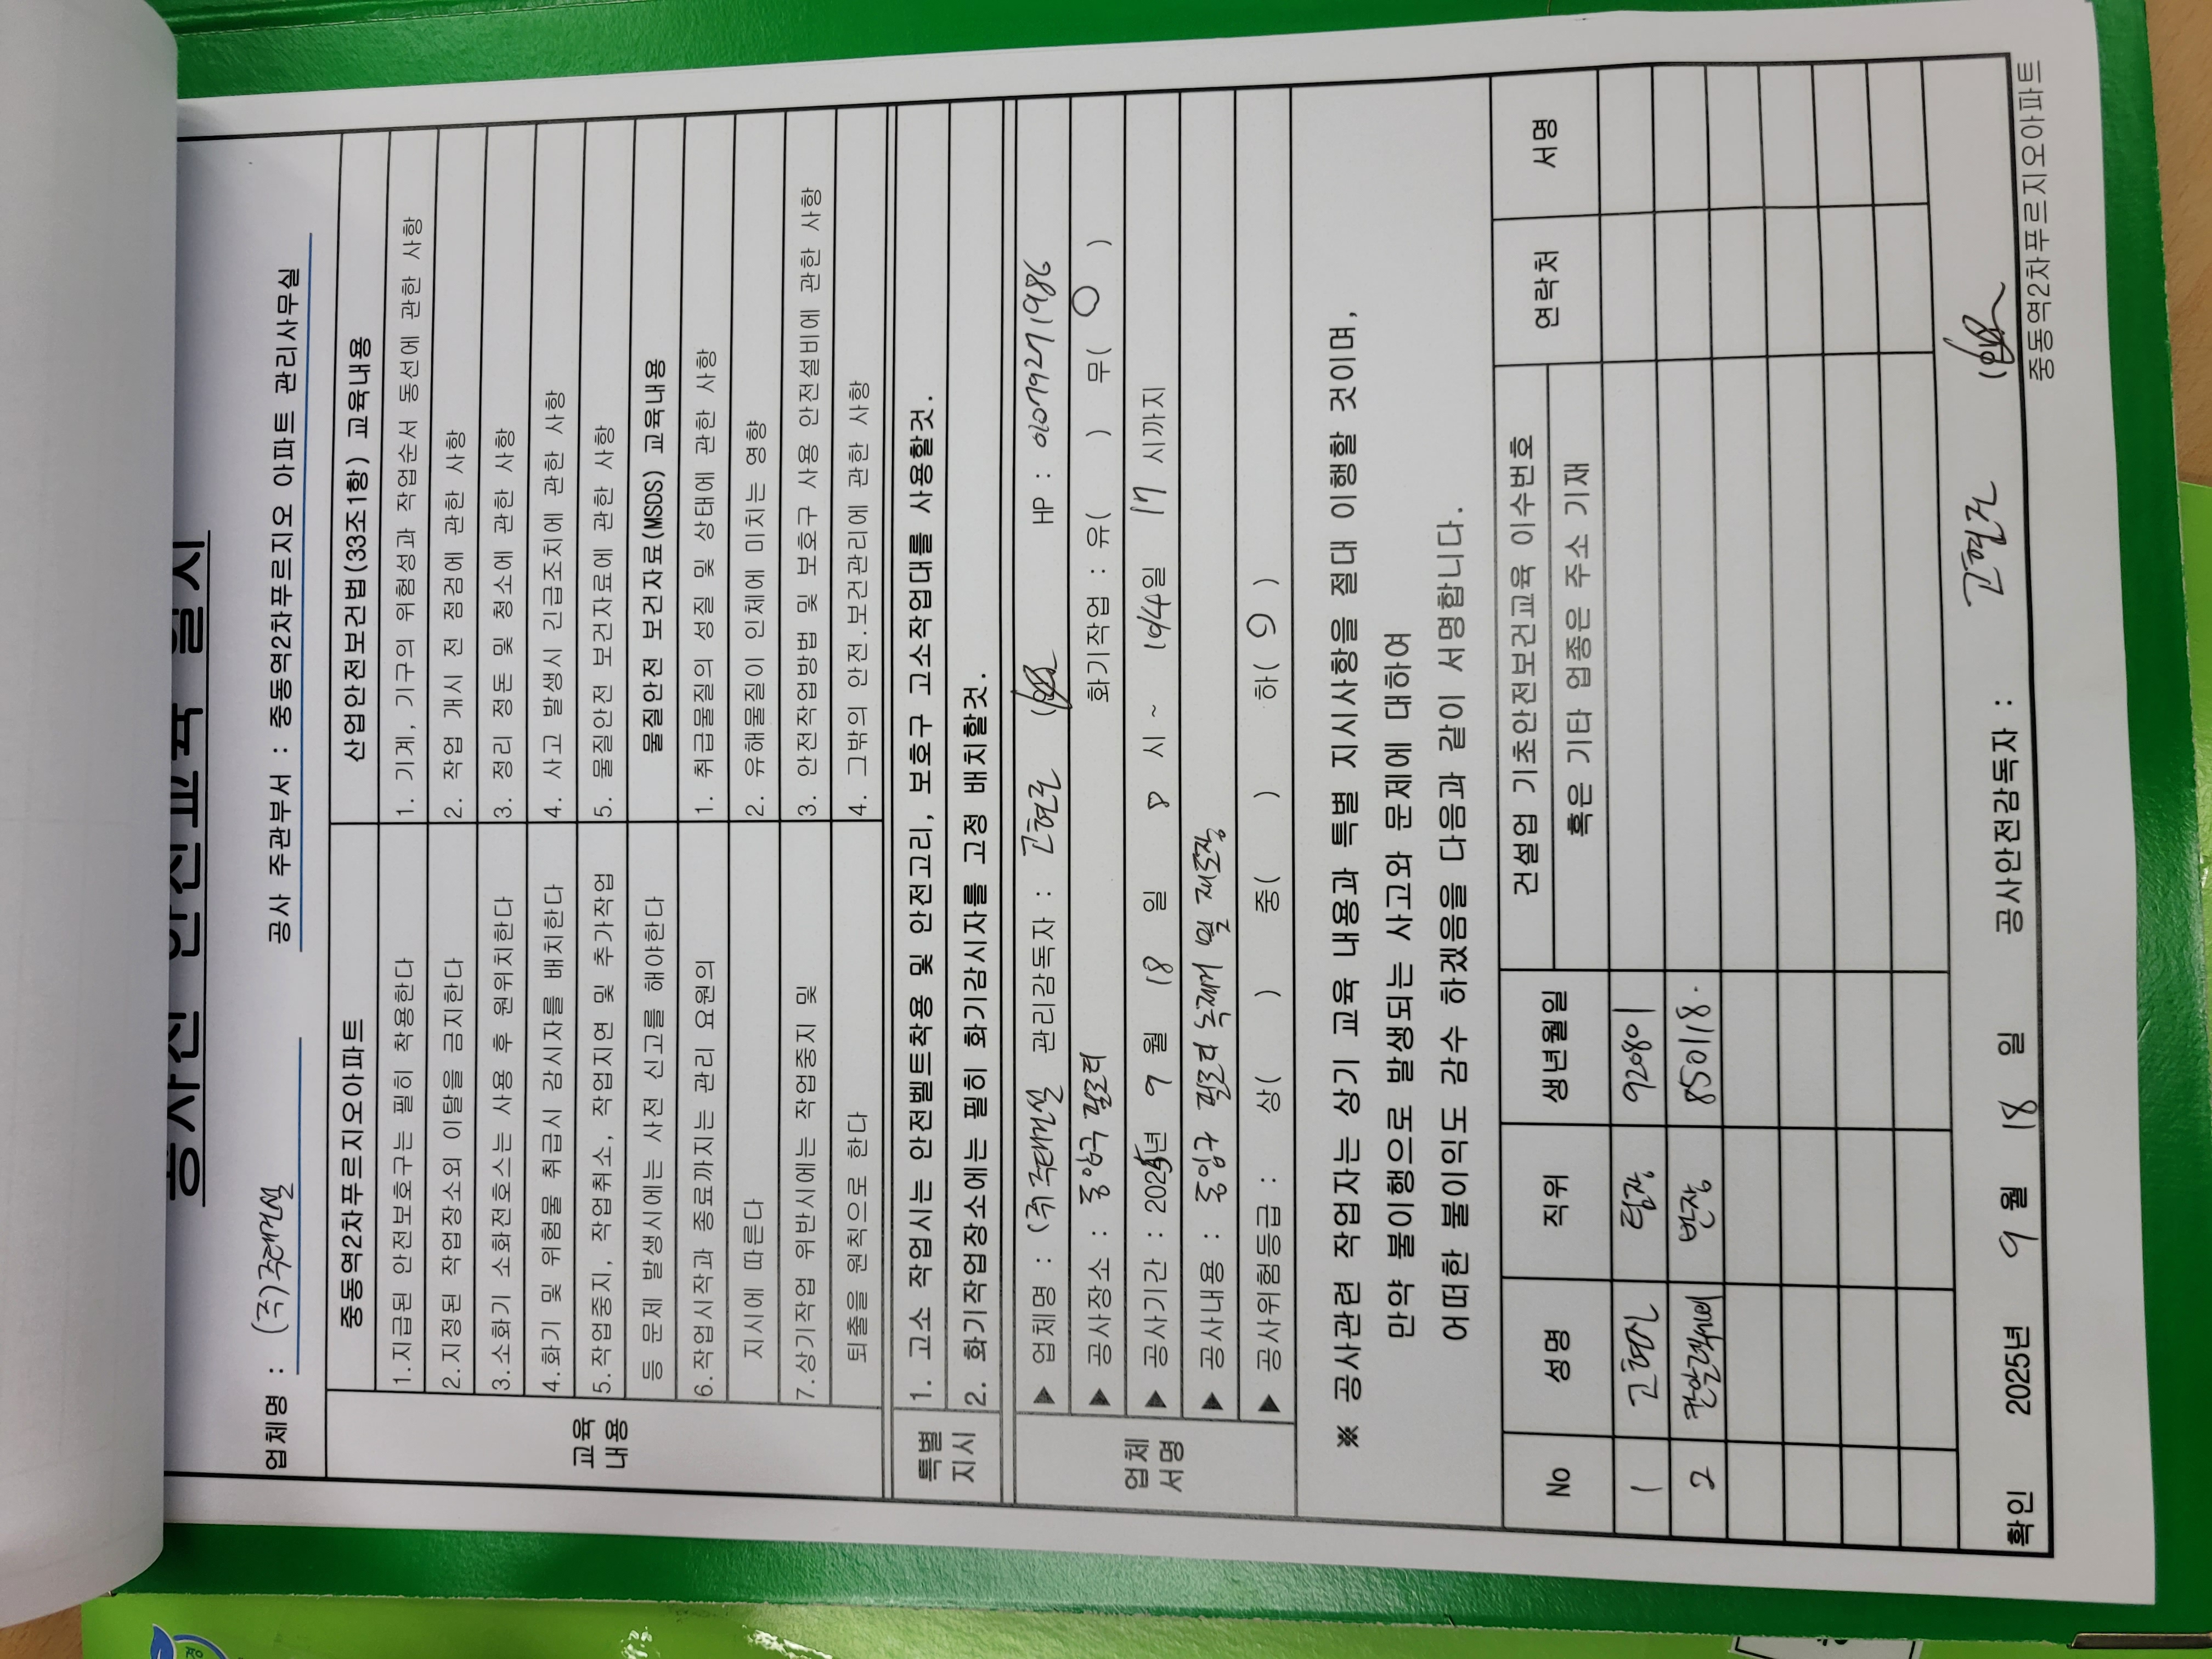 공사전 안전교육 일지
업체명 : (주)주태건설 공사 주관부서 : 중동역2차푸르지오 아파트 관리사무실
교육
내용
중동역2차푸르지오아파트 산업안전보건법(33조1항) 교육내용
1.지급된 안전보호구는 필히 착용한다 1. 기계, 기구의 위험성과 작업순서 동선에 관한 사항
2.지정된 작업장소외 이탈을 금지한다 2. 작업 개시 전 점검에 관한 사항
3.소화기 소화전호스는 사용 후 원위치한다 3. 정리 정돈 및 청소에 관한 사항
4.화기 및 위험물 취급시 감시자를 배치한다 4. 사고 발생시 긴급조치에 관한 사항
5.작업중지, 작업취소, 작업지연 및 추가작업 5. 물질안전 보건자료에 관한 사항
등 문제 발생시에는 사전 신고를 해야한다 물질안전 보건자료(MSDS) 교육내용
6.작업시작과 종료까지는 관리 요원의 1. 취급물질의 성질 및 상태에 관한 사항
지시에 따른다 2. 유해물질이 인체에 미치는 영향
7.상기작업 위반시에는 작업중지 및 3. 안전작업방법 및 보호구 사용 안전설비에 관한 사항
퇴출을 원칙으로 한다 4. 그밖의 안전.보건관리에 관한 사항
특별
지시
1. 고소 작업시는 안전벨트착용 및 안전고리, 보호구 고소작업대를 사용할것.
2. 화기작업장소에는 필히 화기감시자를 고정 배치할것.
업체
서명
▶ 업체명 : (주)주태건설 관리감독자 : (인) HP : 01079271986
▶ 공사장소 : 화기작업 : 유( ) 무( ○ )
▶ 공사기간 : 2025년 9 월 18 일 8 시 ~ 일 17 시까지
▶ 공사내용 : 필로티 및 재도장
▶ 공사위험등급 : 상( ) 중( ) 하( ○ )
※ 공사관련 작업자는 상기 교육 내용과 특별 지시사항을 절대 이행할 것이며,
만약 불이행으로 발생되는 사고와 문제에 대하여
어떠한 불이익도 감수 하겠음을 다음과 같이 서명합니다.
No 성명 직위 생년월일 건설업 기초안전보건교육 이수번호 연락처 서명
혹은 기타 업종은 주소 기재
1 팀장 920801
2 반장 850118.
확인 2025년 9 월 18 일 공사안전감독자 : (인)
중동역2차푸르지오아파트